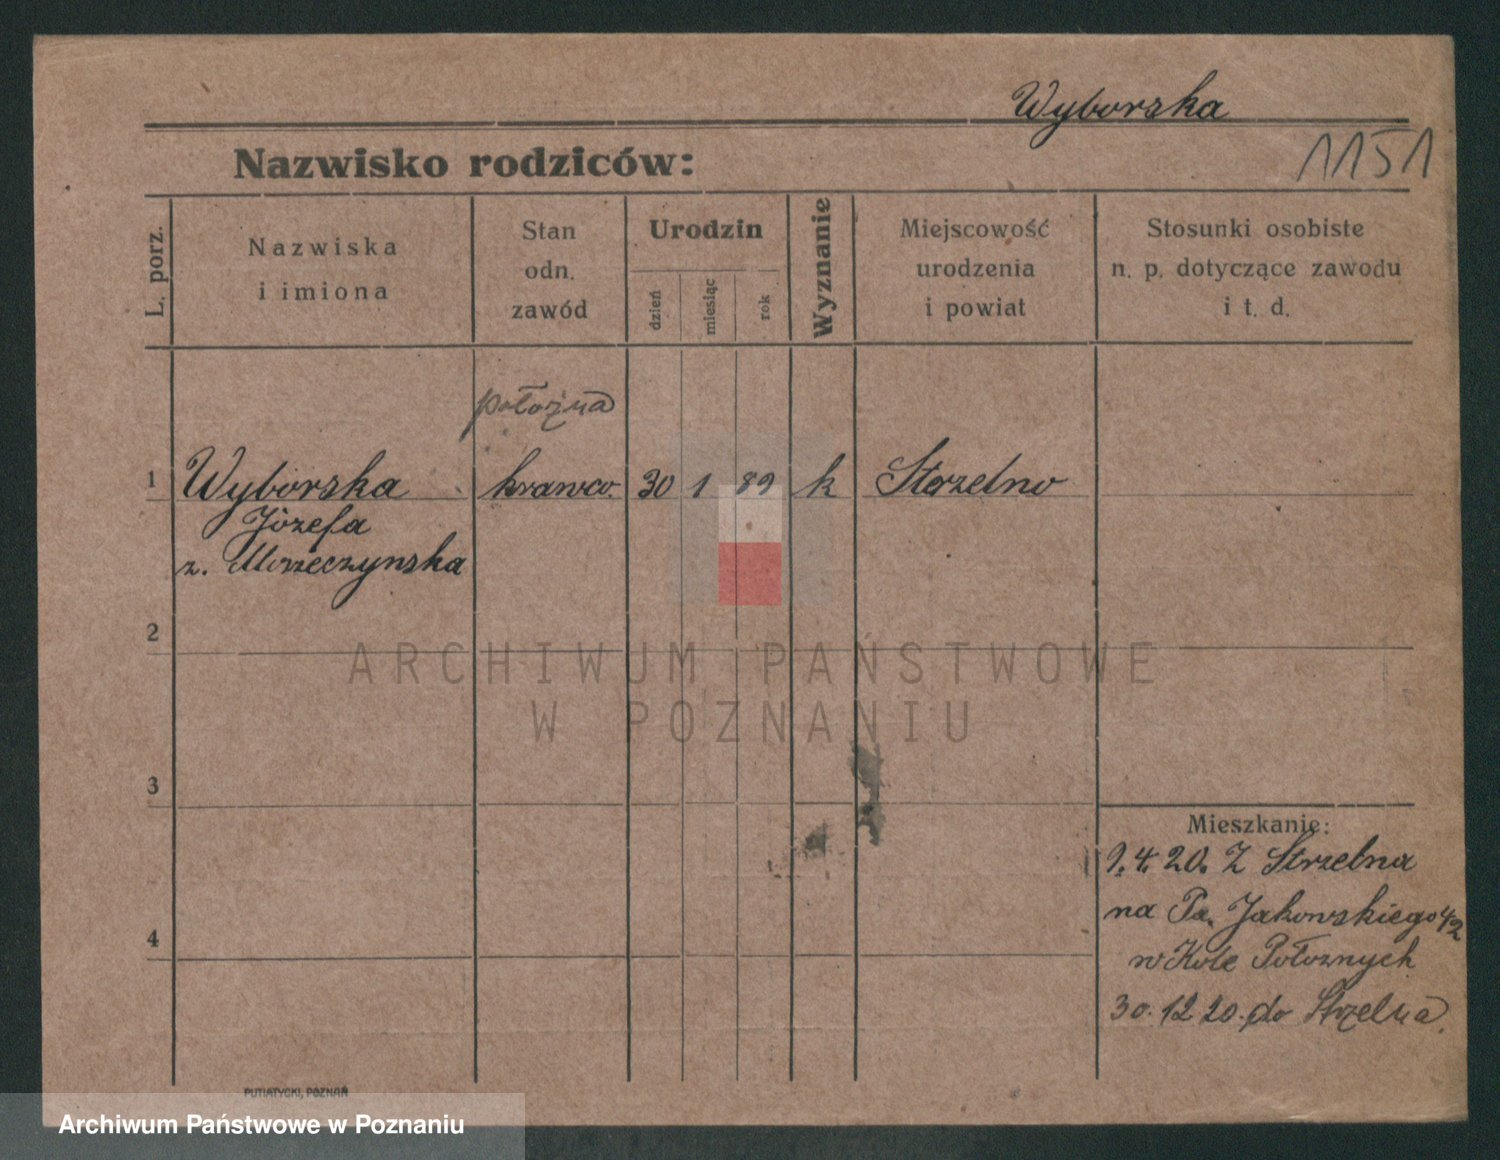 Wyborska
1151
Nazwisko rodziców:
L. porz.
Nazwiska
i imiona
Stan
odn.
zawód
Urodzin
dzień
miesiąc
rok
Wyznanie
Miejscowość
urodzenia
i powiat
Stosunki osobiste
n. p. dotyczące zawodu
i t. d.
położna
1 Wyborska krawco. 30 1 89 k Strzelno
Józefa
z. Mrzeczynska
2
ARCHIWUM PAŃSTWOWE
W POZNANIU
3
Mieszkanie:
9.4.20. Z Strzelna
na Pa. Jakowskiego 42
4
w Kole Położnych
30.12 20. do Strzelna.
PUTIATYCKI, POZNAŃ
Archiwum Państwowe w Poznaniu